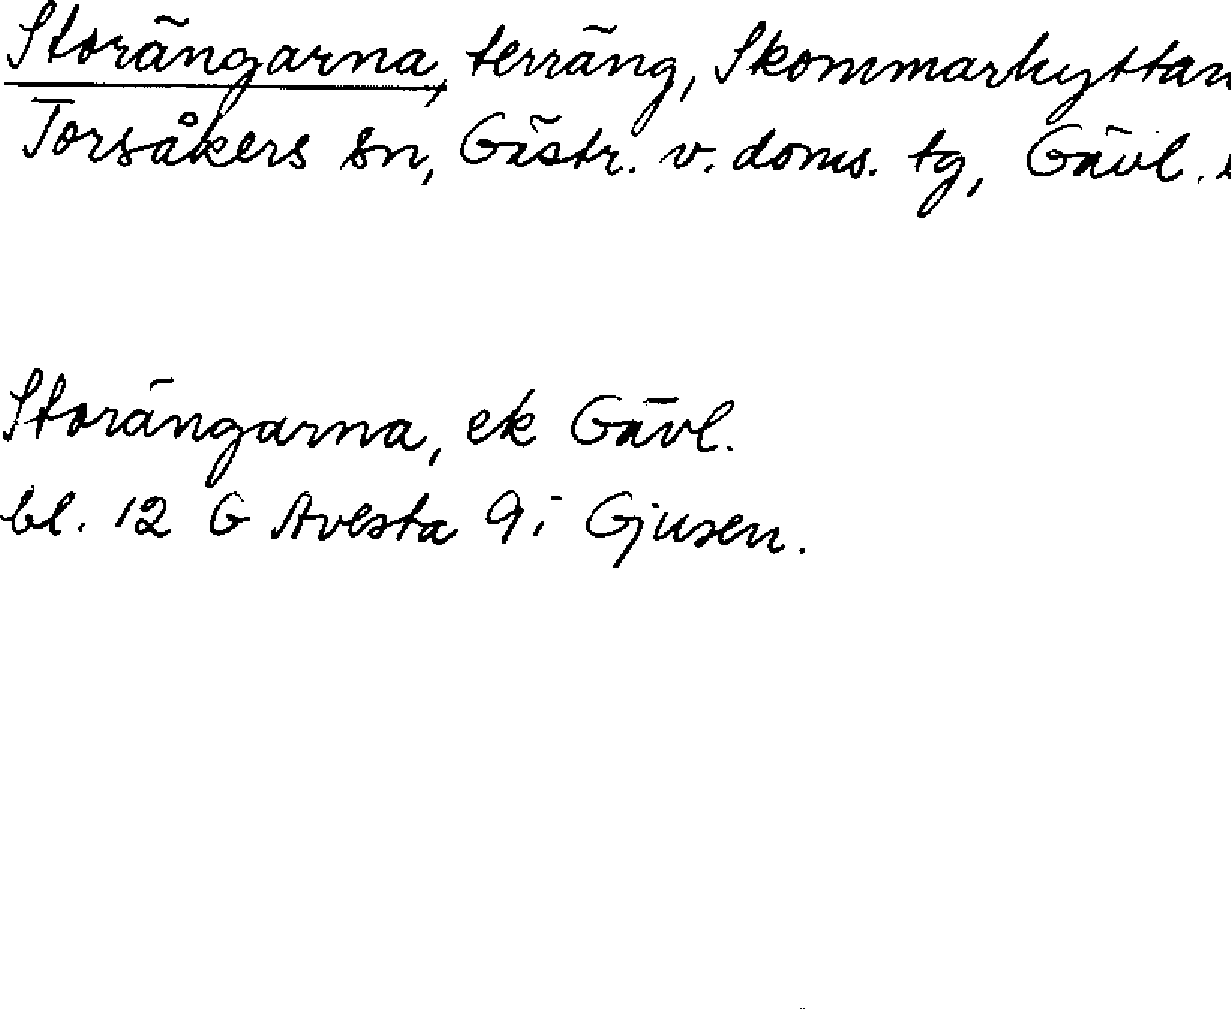 Storängarna, terräng, Skommarhyttan
Torsåkers sn, Gästr. v. doms. tg, Gävl.
Storängarna, ek Gävl.
bl. 12 G Avesta 9i Gjusen.